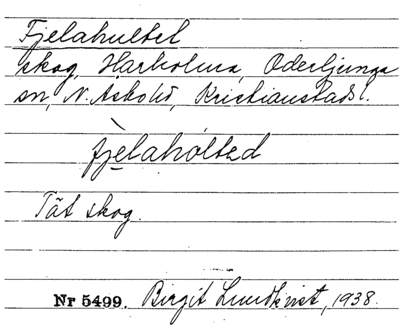 Fjelahultet
skog, Harholma, Oderljunga
sn, N. Åsbo hd, Kristianstads l.
fjèlahóltəd
Tät skog.
Nr 5499. Birgit Lundkvist, 1938.